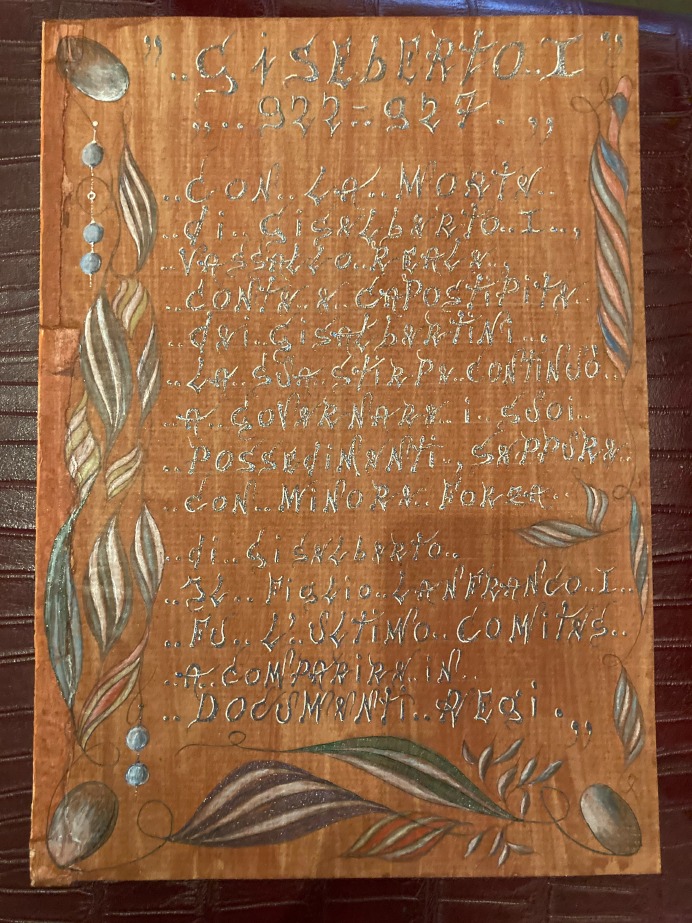 "..GISEBERTO..I"
„...922=927.„
..CON..LA..MORTE..
..di..GiSELbERTO..I..,
..VASSALLO..REALE..
..CONTE..E..CAPOSTIPITE..
..dEi..GiSALbERTiNi..,
..LA..SUA..STIRPE..CONTINUÒ..
..A..GOVERNARE..i..SUOi..
..POSSEdiMENTi..,SEPPURE..
..CON..MiNORE..FORZA..
..di..GiSELbERTO..
..IL..FiGLiO..LANFRANCO..I..
..FU..L'ULTiMO..COMiTES..
..A..COMPARiRE..iN..
..DOCUMENTi..REGi.„